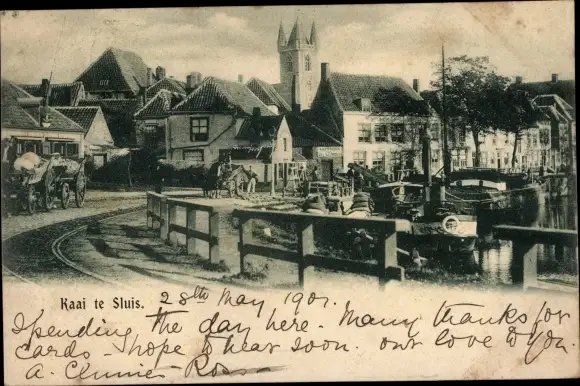 Kaai te Sluis. 28th May 1901.
Spending the day here. Many thanks for
cards - I hope to hear soon. our love to you.
A. Clunier - Ross